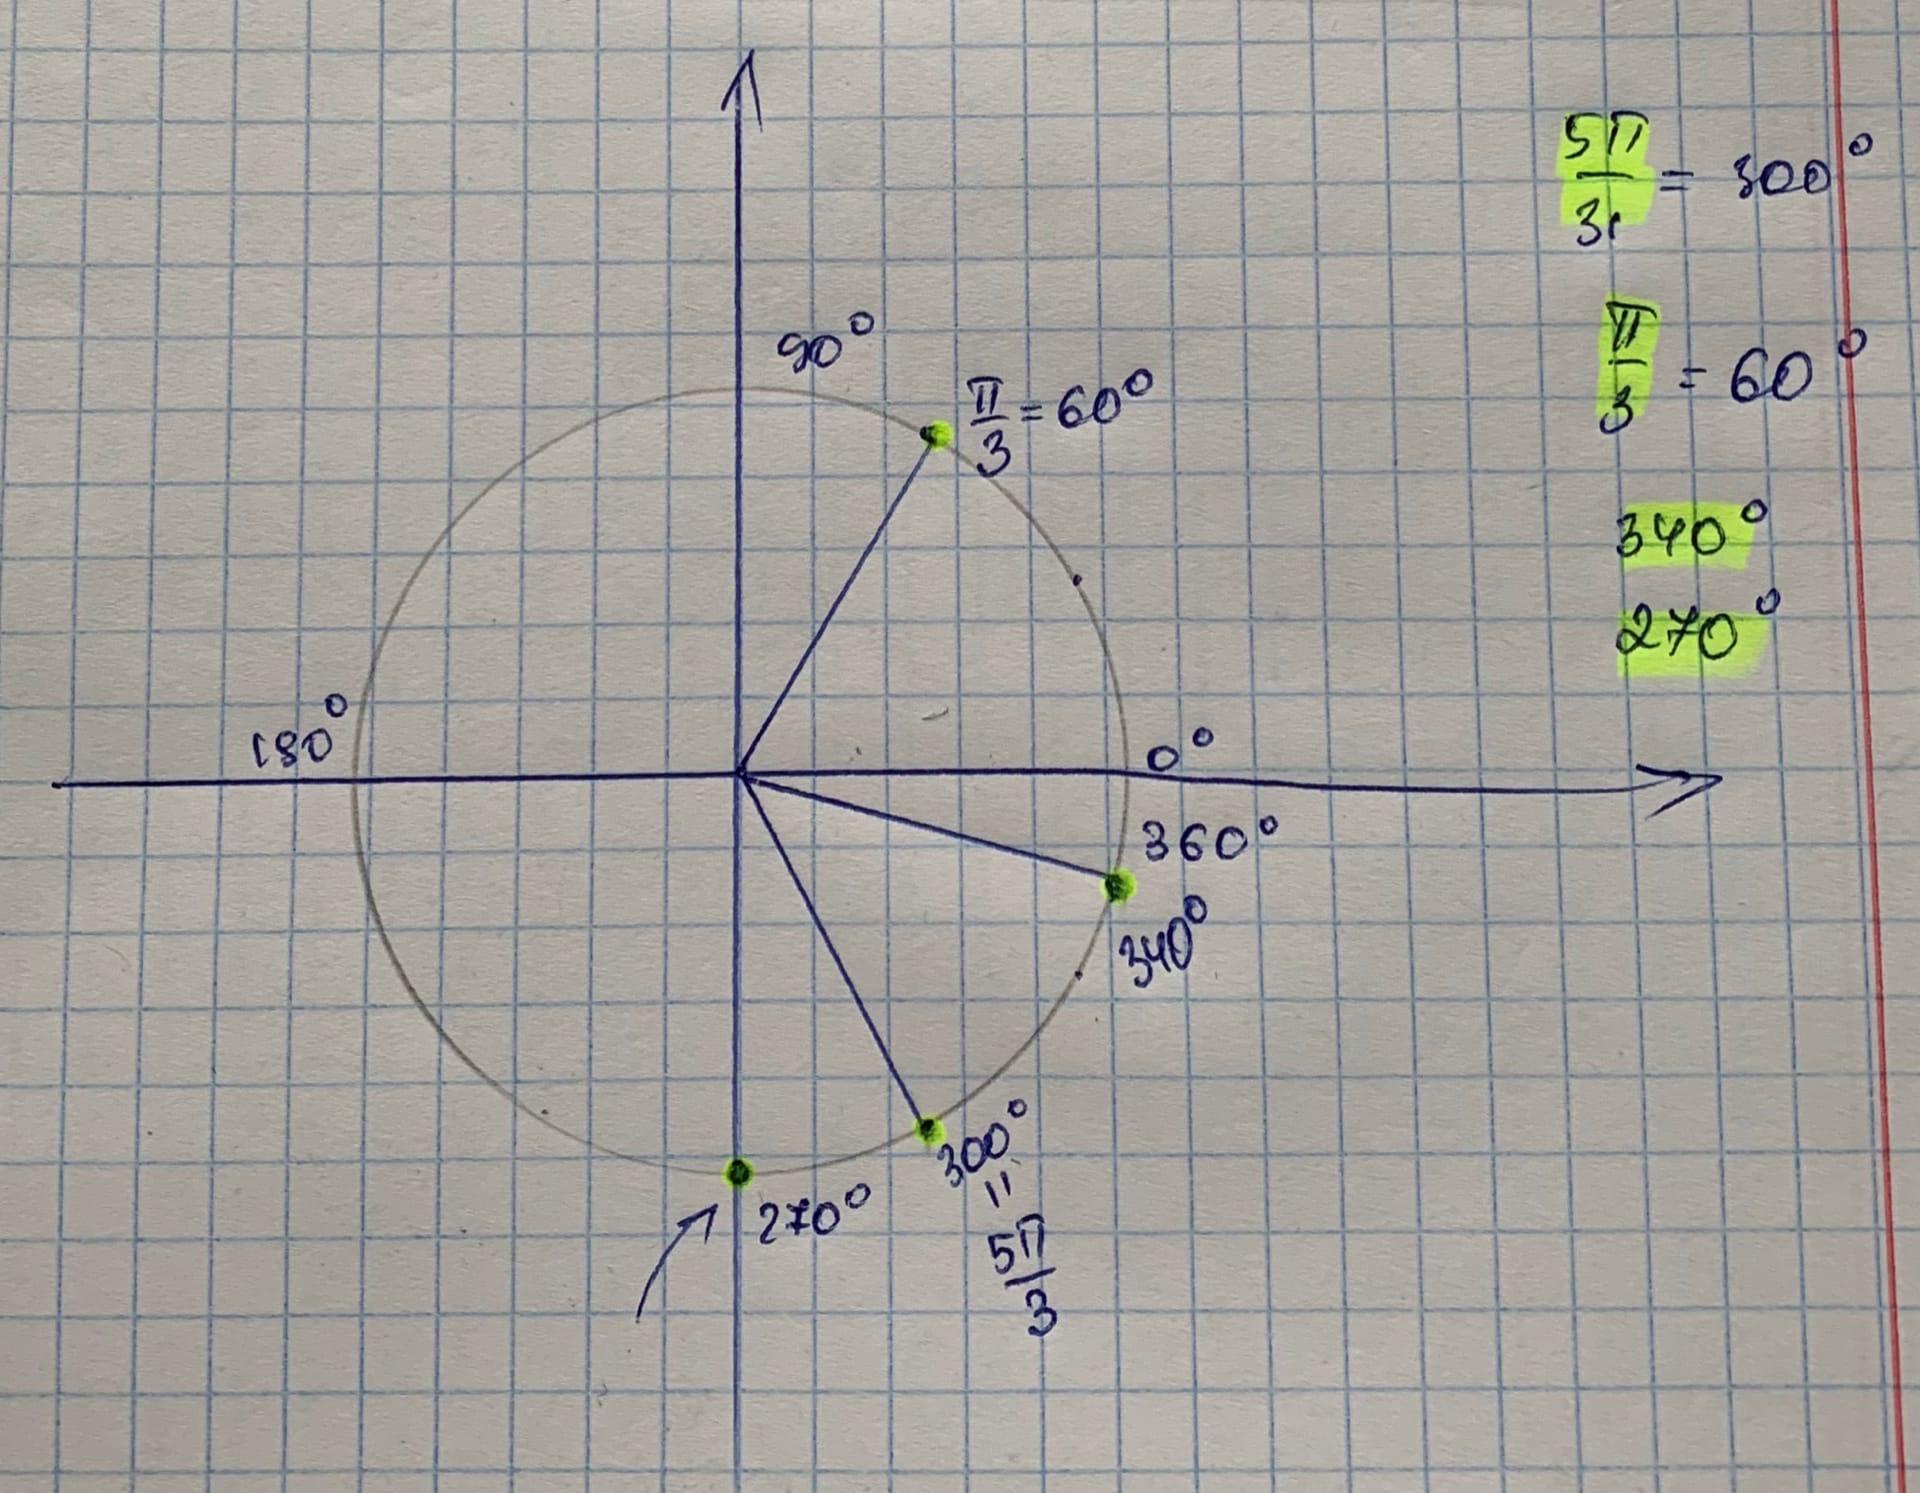 5π/3 = 300°
π/3 = 60°
340°
270°
90°
π/3 = 60°
180°
0°
360°
340°
300°
=
5π/3
270°